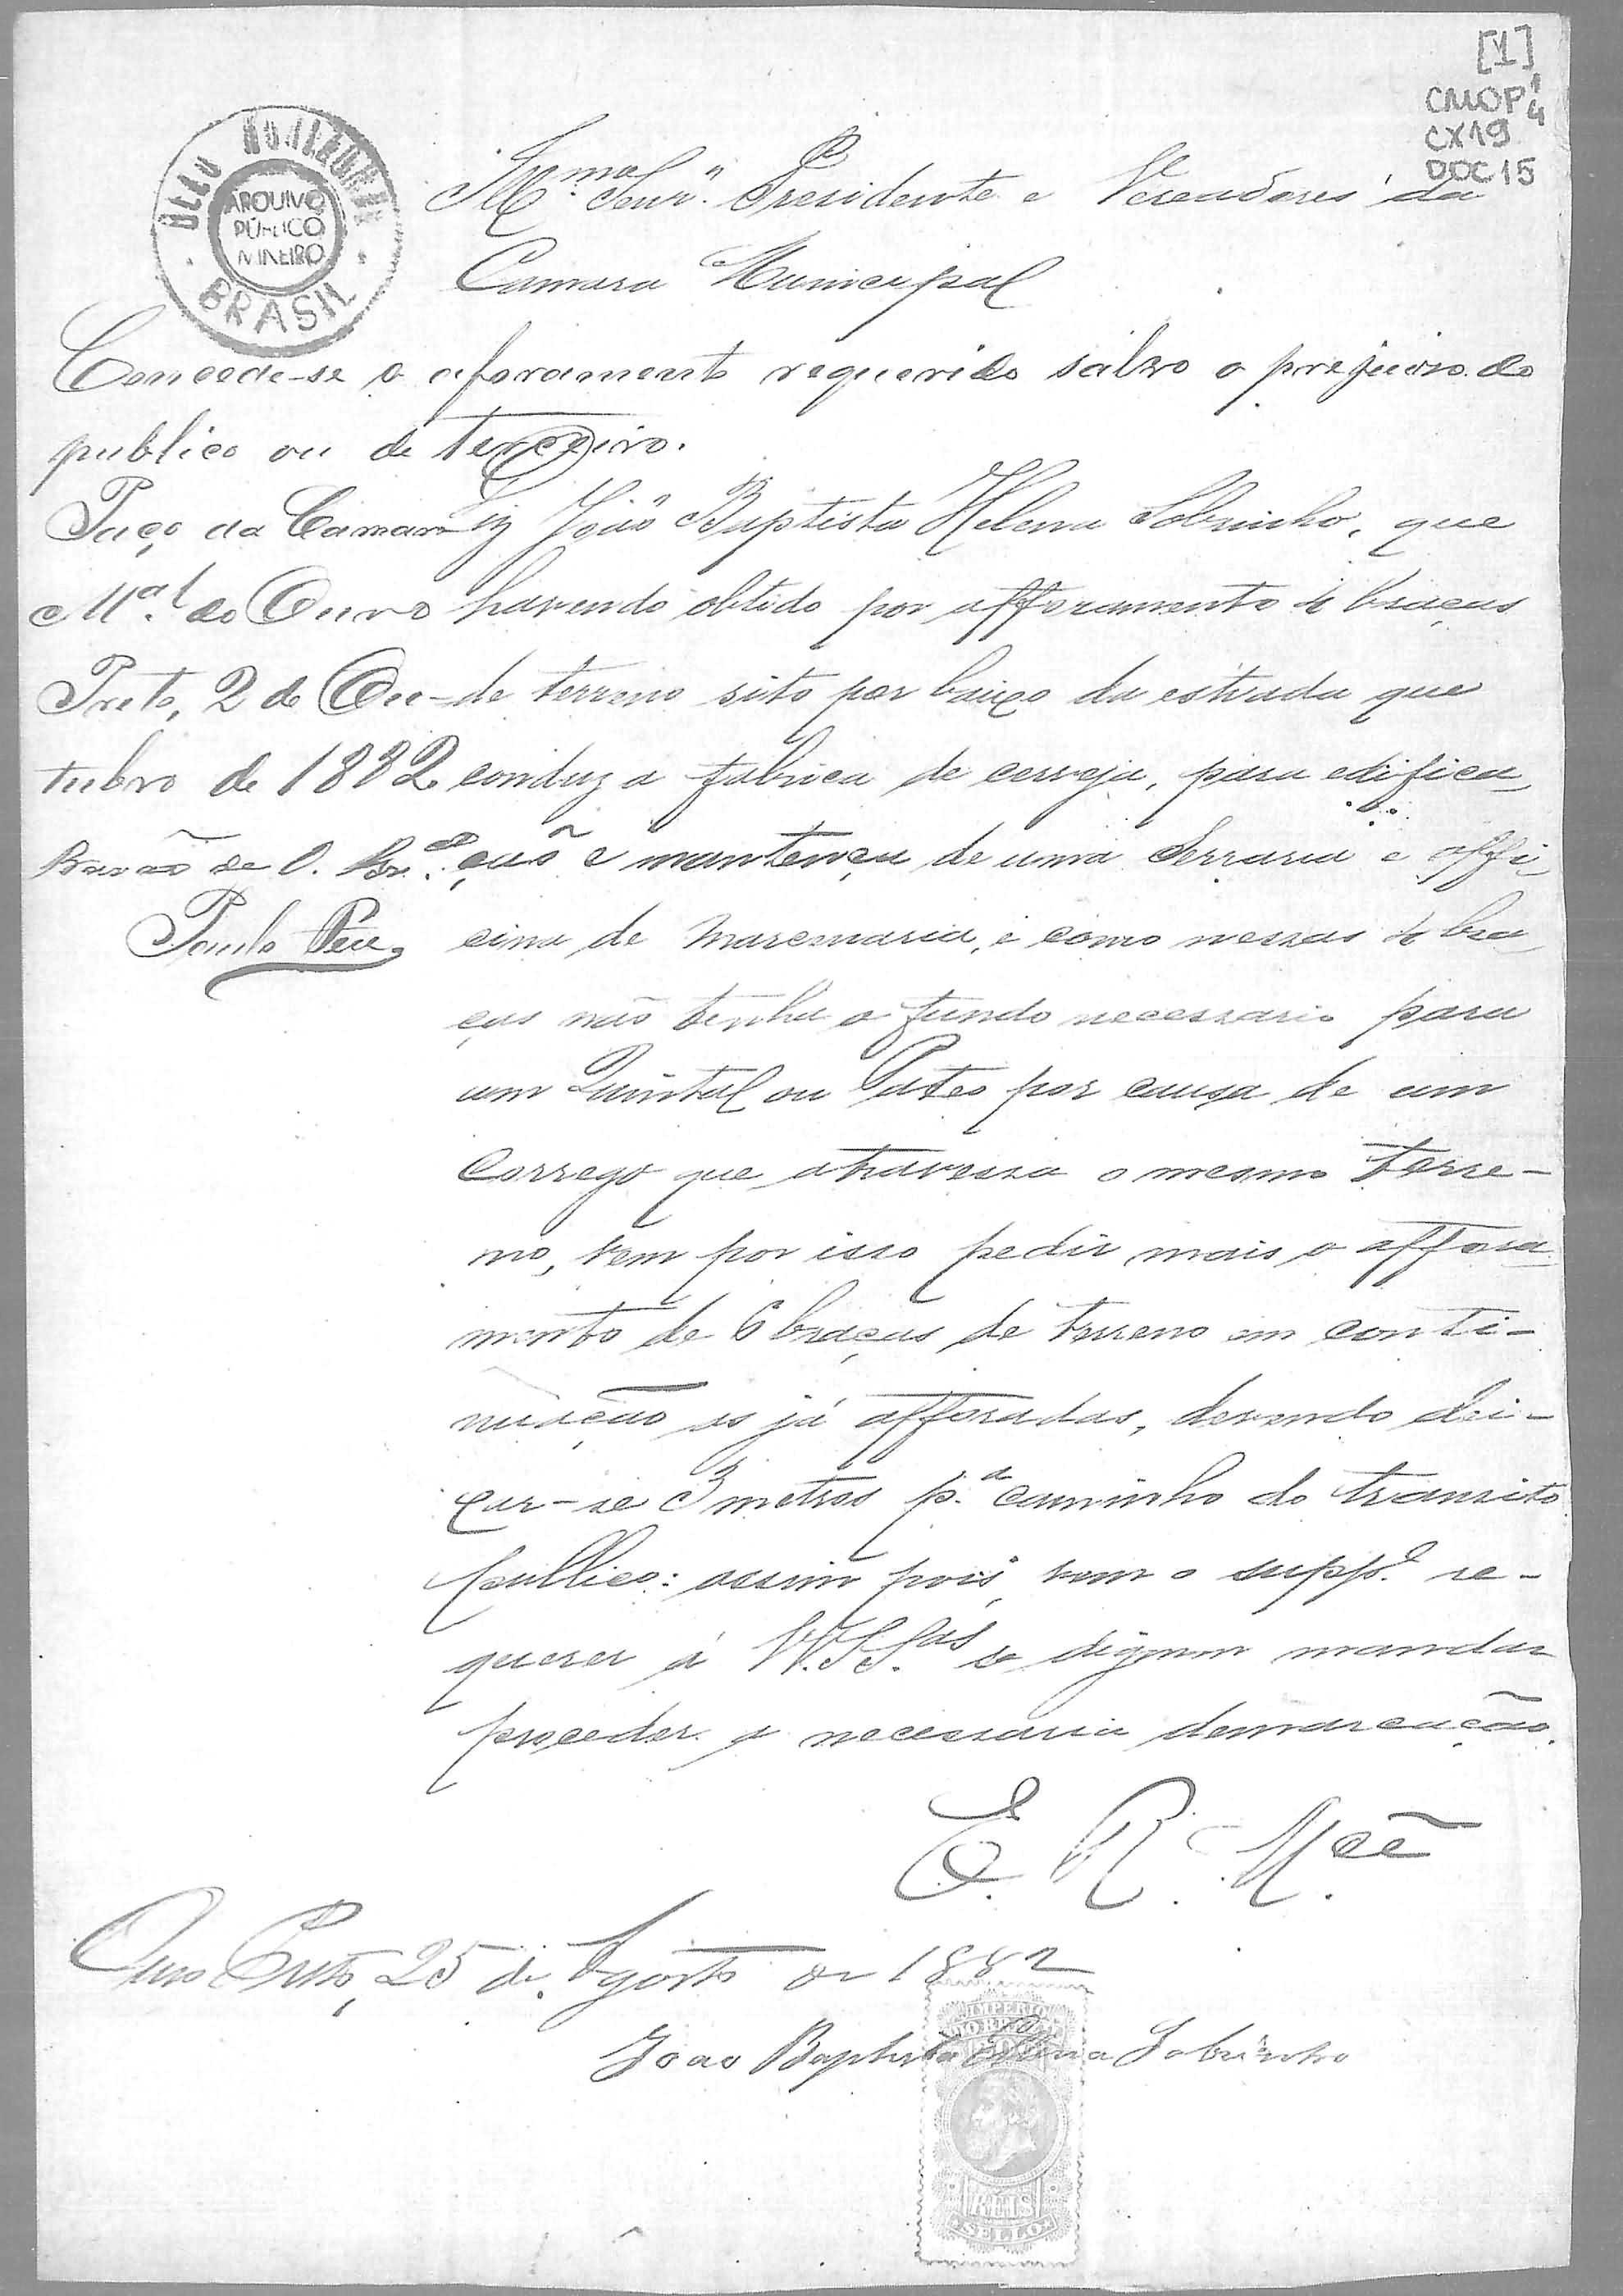 [1]
CMOP 1/4
CX19
DOC 15
BELO HORIZONTE
ARQUIVO
PÚBLICO
MINEIRO
BRASIL
Ill.mos Senr.es Presidente e Vereadores da
Camara Municipal
Concede-se o aforamento requerido salvo o prejuizo do
publico ou de terceiro.
Paço da Camara
M.al do Ouro
Preto, 2 de Ou-
tubro de 1882
Barão de C. Br.co
Diz João Baptista Helena Sobrinho, que
havendo obtido por afforamento 4 braças
de terreno sito por baixo da estrada que
conduz a fabrica de cerveja, para edifica
ção e mantença de uma Serraria e offi-
cina de Marcenaria, e como nessas 4 bra
ças não tenha o fundo necessario para
um Quintal ou Pateo por causa de um
Corrego que atravessa o mesmo terre-
no, vem por isso pedir mais o affora
mento de 6 braças de terreno em conti-
nuação as já afforadas, devendo dei-
xar-se 3 metros p.a caminho do transito
publico: assim pois, vem o supp.e re-
querer á V.V.S.S.as se dignem mandar
proceder a necessaria demarcação.
E. R. M.cê
Ouro Preto, 25 de Agosto de 1882
João Baptista Helena Sobrinho
IMPERIO
DO BRAZIL
REIS
SELLO